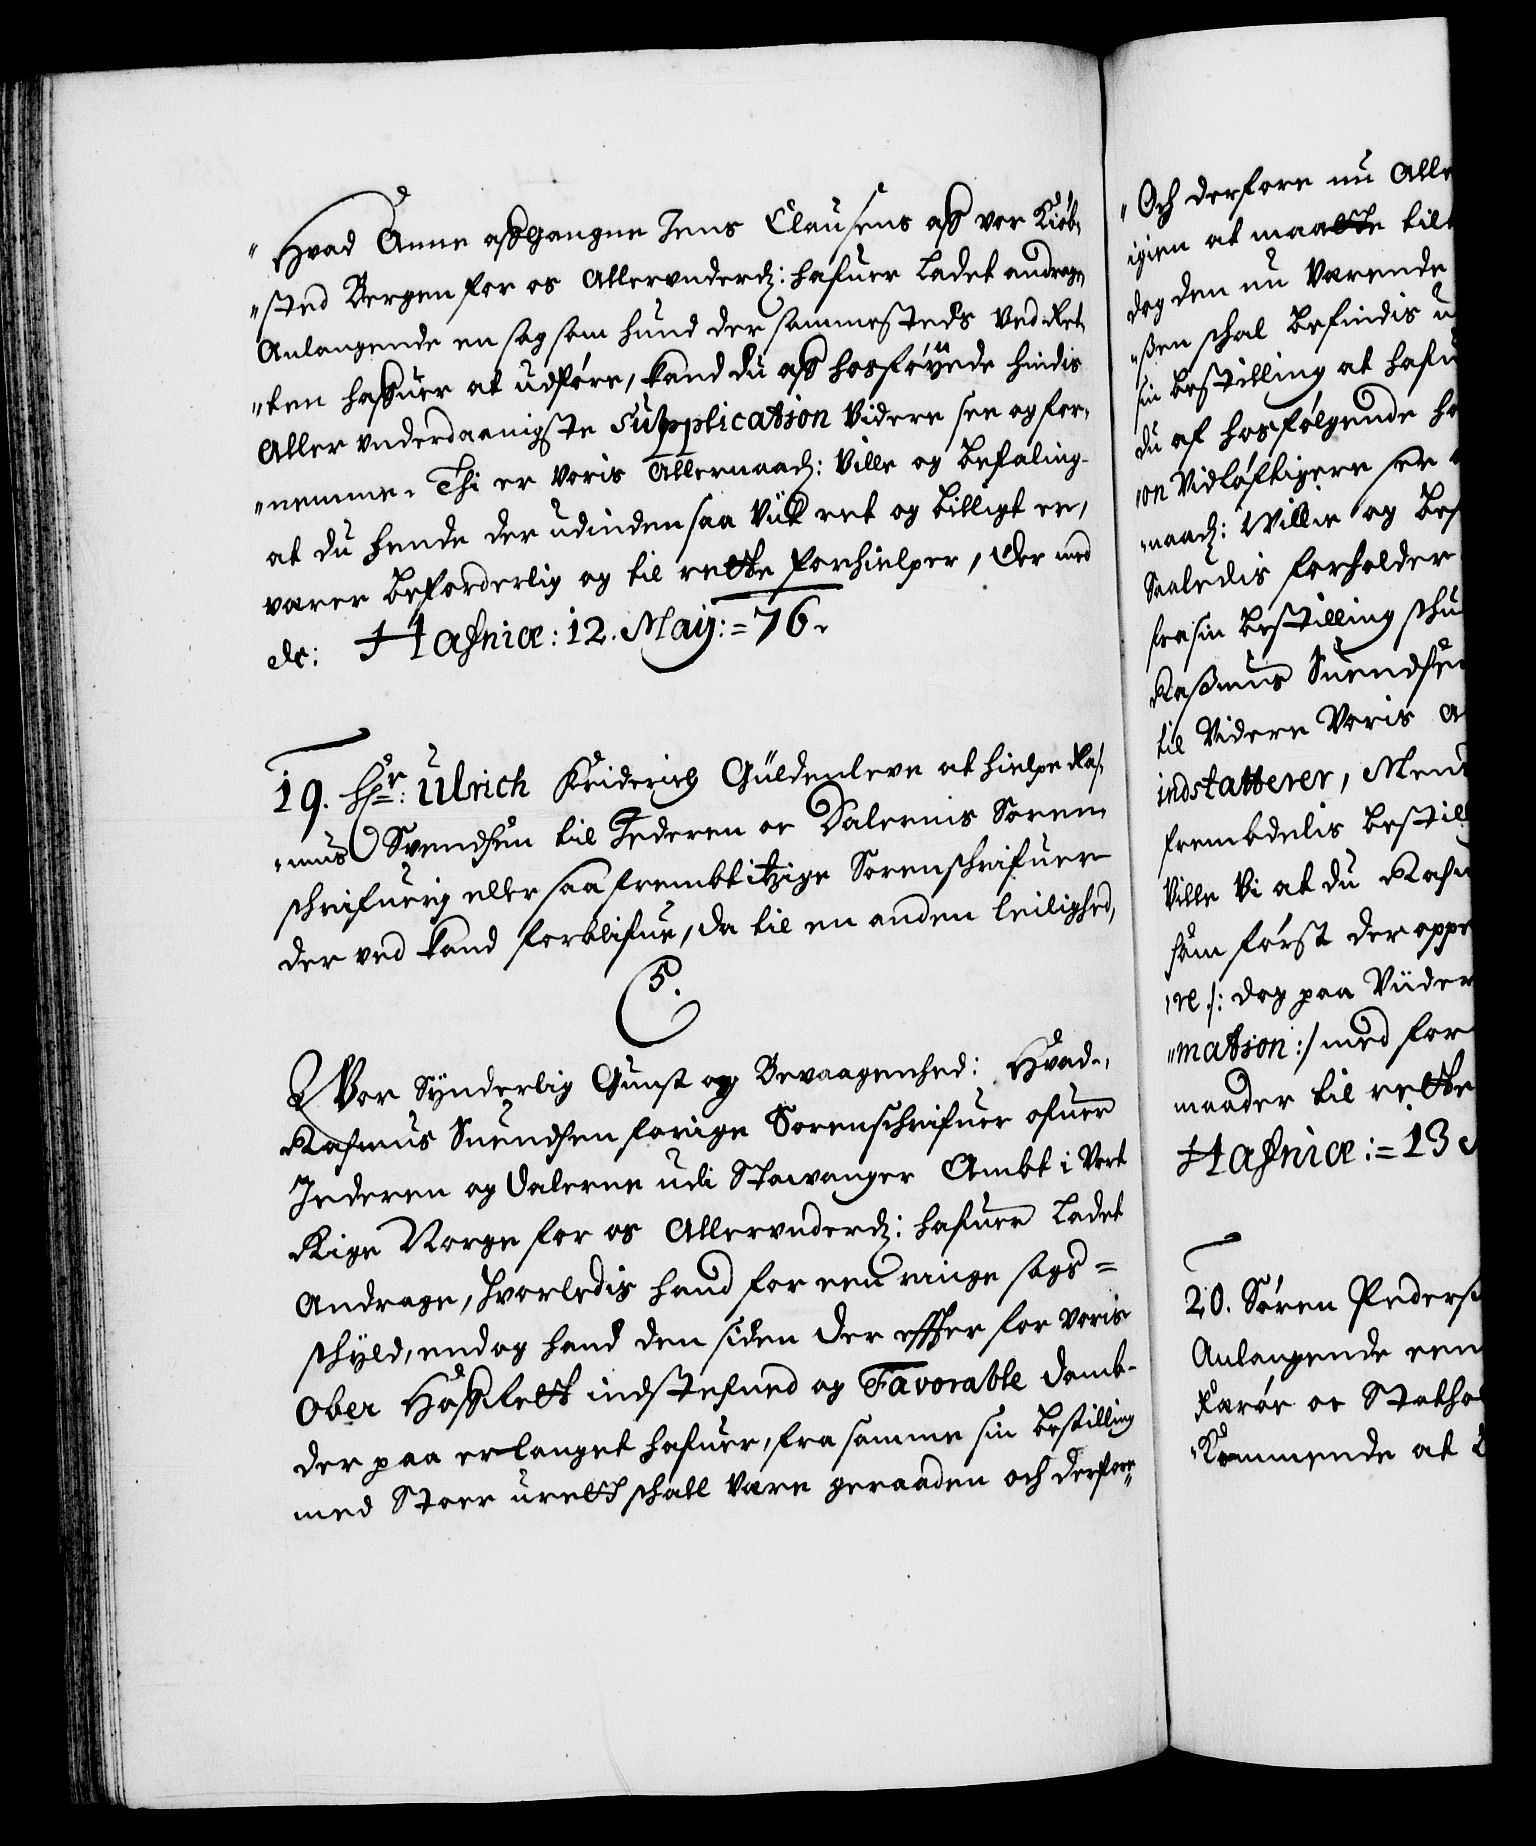 "Hvad Anne afgangne Jens Clausens aff vor Kiöb„
„sted Bergen for os Allervnderdz: hafuer ladet andrage„
Anlangende en sag som hund der sammesteds ved Ret„
„ten haffuer at udföre, kand du aff hosföyede hindis
Aller vnderdaanigste Supplication videre see og for„
„nemme. Thi er Voris Allernaadz: Ville og Befaling
at du hende der udinden saa vijt ret og billigt er,
værer Beforderlig og til rette forhielper, der med
etc: Hafniæ: 12. Maij: = 76.
19. Hr: Ulrich Friderich Güldenleve at hielpe Ras„
„mus Svendsen til Jederen oc Dalernis Soren„
schrifuerj eller saa frembt itzige Sorenschrifuer
der ved kand forblifue, da til en anden leilighed,
C5.
Vor Synderlig Gunst og Bevaagenhed: Hvad„
Rasmus Suendsen forige Sorenschrifuer ofuer
Jederen og Dalerne udi Stavanger Ambt i Vort
Rige Norge for os Allervnderdz: hafuer ladet
Andrage, hvorledis hand for een ringe sags =
schyld, endog hand den siden der effter for voris
Ober Hoffrett indstefned og Favorable domb
der paa erlanget hafuer, fra samme sin bestilling
med Stoer urett schall være geraaden och derfore„
„Och derfore nu Alle
igien at maatte til
dog den nu værende
„ßen schal befindis u
sin bestilling at hafu
du af hosfølgende
„on vidløftigere see
„naadz: Willie og Bef
Saaledis forholder
fra sin bestilling schu
Rasmus Suendsen
til Videre Voris
indstatterer, Mend
frembdelis bestil
Ville Vi at du Rasm
som först der oppe
„re /: dog paa Viider
„mation :/ med for
maader til rette
Hafniæ: = 13
20. Sören Peders
Anlangende een
Færör oc Stathol
„Kommende at